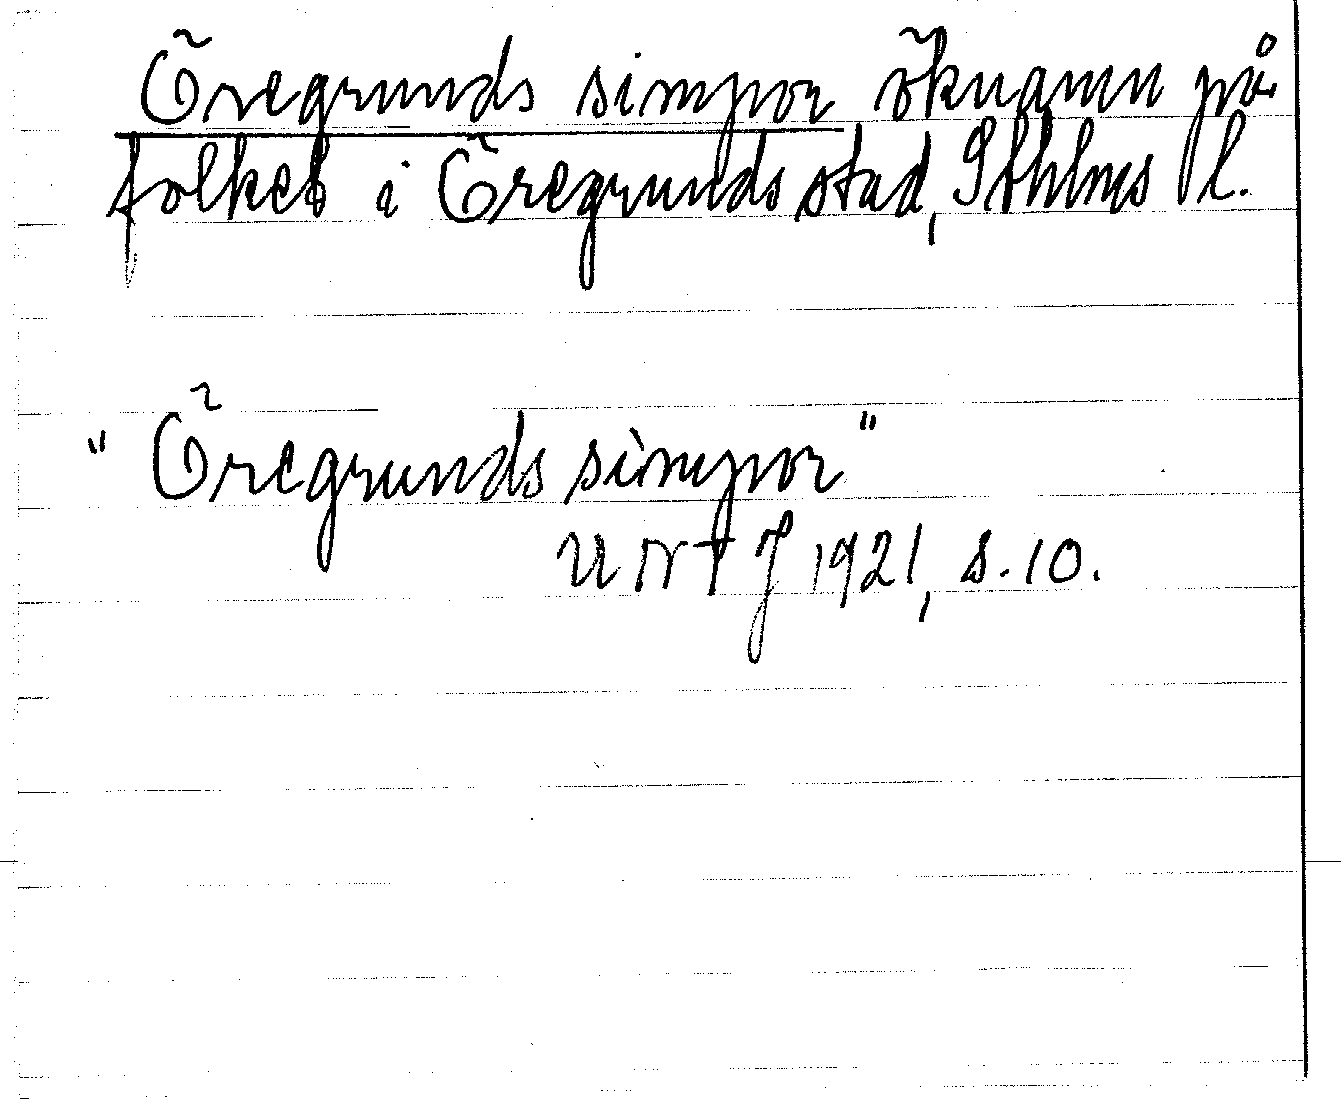 Öregrunds simpor öknamn på
folket i Öregrunds stad, Sthlms l.
"Öregrunds simpor"
UNTJ 1921, s. 10.